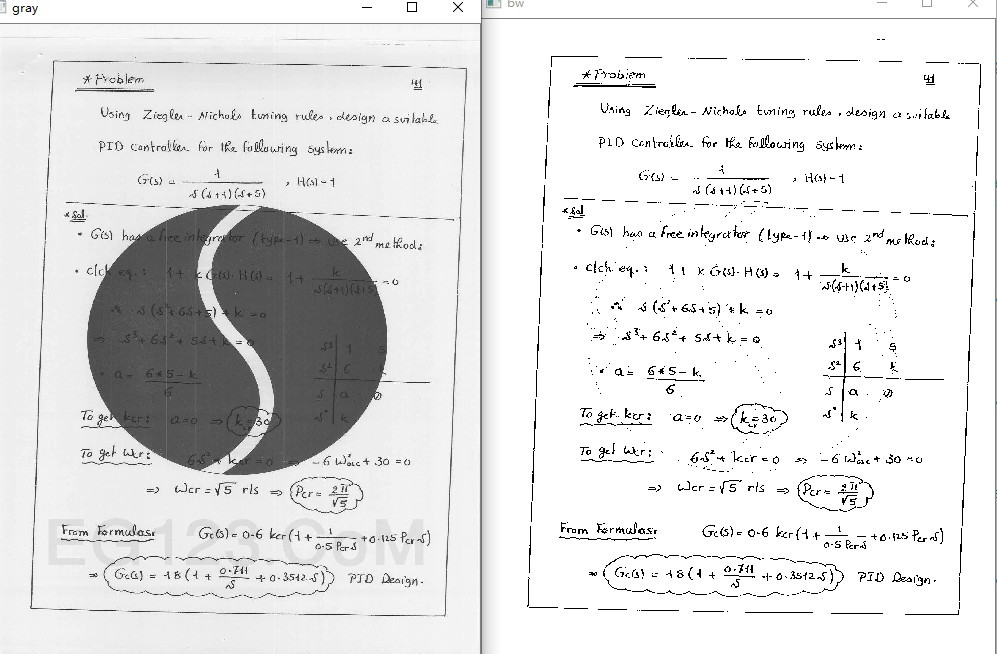 gray
* Problem 41
Using Ziegler-Nichols tuning rules, design a suitable
PID controller for the following system:
G(s) = 1 / s(s+1)(s+5) , H(s)=1
* Sol.
• G(s) has a free integrator (type-1) ⇒ use 2nd method:
• c/ch eq.: 1 + k G(s)·H(s) = 1 + k / s(s+1)(s+5) = 0
∴ s(s²+6s+5)+k=0
⇒ s³+6s²+5s+k=0
s³ | 1 5
s² | 6 k
• a = 6*5-k / 6
s | a 0
s° | k
To get kcr: a=0 ⇒ k=30
To get Wcr: 6s²+kcr=0 ⇒ -6W²osc+30=0
⇒ Wcr=√5 r/s ⇒ Pcr = 2π/√5
EG123.CoM
From Formulas: Gc(s)=0.6 kcr(1+ 1/0.5 Pcr s +0.125 Pcr s)
⇒ Gc(s)=18(1+ 0.711/s +0.3512 s) PID Design.
bw
* Problem 41
Using Ziegler-Nichols tuning rules, design a suitable
PID controller for the following system:
G(s) = 1 / s(s+1)(s+5) , H(s)=1
* Sol
• G(s) has a free integrator (type-1) ⇒ use 2nd method:
• c/ch eq.: 1 + k G(s)·H(s) = 1 + k / s(s+1)(s+5) = 0
∴ s(s²+6s+5)+k=0
⇒ s³+6s²+5s+k=0
s³ | 1 5
s² | 6 k
• a = 6*5-k / 6
s | a 0
s° | k
To get kcr: a=0 ⇒ k=30
To get Wcr: 6s²+kcr=0 ⇒ -6W²osc+30=0
⇒ Wcr=√5 r/s ⇒ Pcr = 2π/√5
From Formulas: Gc(s)=0.6 kcr(1+ 1/0.5 Pcr s +0.125 Pcr s)
⇒ Gc(s)=18(1+ 0.711/s +0.3512 s) PID Design.